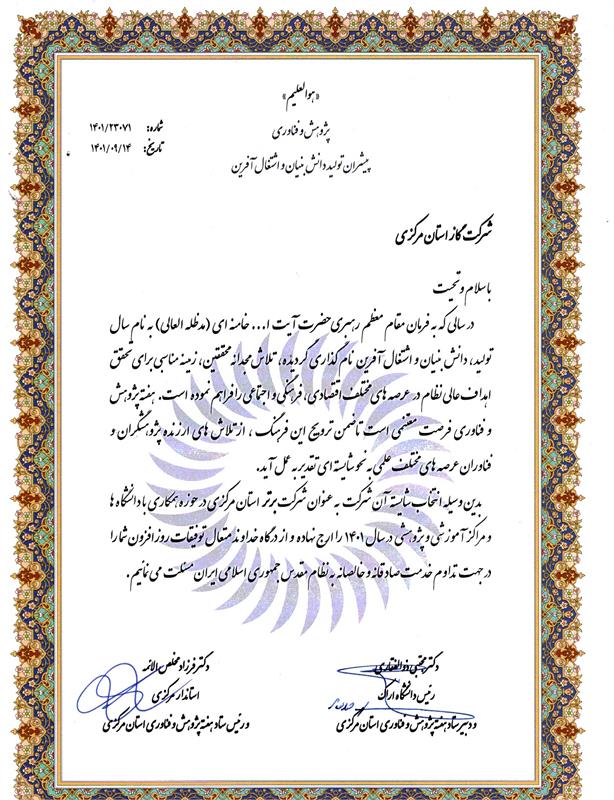 «هوالعلیم»
پژوهش و فناوری
پیشران تولید دانش بنیان و اشتغال آفرین
شماره: ۱۴۰۱/۲۳۰۷۱
تاریخ: ۱۴۰۱/۰۹/۱۴
شرکت گاز استان مرکزی
با سلام و تحیت
در سالی که به فرمان مقام معظم رهبری حضرت آیت ا... خامنه ای (مدظله العالی) به نام سال
تولید، دانش بنیان و اشتغال آفرین نام گذاری گردیده، تلاش مجدانه محققین، زمینه مناسبی برای تحقق
اهداف عالی نظام در عرصه های مختلف اقتصادی، فرهنگی و اجتماعی را فراهم نموده است. هفته پژوهش
و فناوری فرصت مغتنمی است تا ضمن ترویج این فرهنگ، از تلاش های ارزنده پژوهشگران و
فناوران عرصه های مختلف علمی به نحو شایسته ای تقدیر به عمل آید.
بدین وسیله انتخاب شایسته آن شرکت به عنوان شرکت برتر استان مرکزی در حوزه همکاری با دانشگاه ها
و مراکز آموزشی و پژوهشی در سال ۱۴۰۱ را ارج نهاده و از درگاه خداوند متعال توفیقات روزافزون شما را
در جهت تداوم خدمت صادقانه و خالصانه به نظام مقدس جمهوری اسلامی ایران مسئلت می نمائیم.
دکتر مجتبی ذوالفقاری
رئیس دانشگاه اراک
و دبیر ستاد هفته پژوهش و فناوری استان مرکزی
دکتر فرزاد مخلص الائمه
استاندار مرکزی
و رئیس ستاد هفته پژوهش و فناوری استان مرکزی